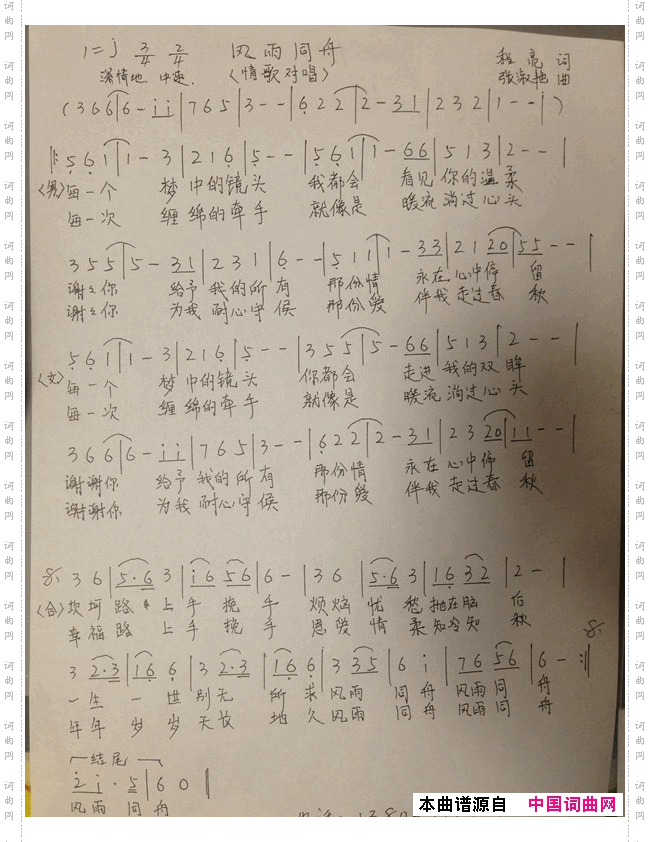 1=j 3/4 2/4 风雨同舟
深情地 中速 〈情歌对唱〉
程亮 词
张淑艳 曲
(3 6 6|6 - i i|7 6 5|3 - -|6 2 2|2 - 3 1|2 3 2|1 - -|)
‖: 5 6 1|1 - 3|2 1 6|5 - -|5 6 1|1 - 6 6|5 1 3|2 - -|
〈男〉每一个 梦 中的镜头 我都会 看见 你的温柔
每一次 缠 绵的牵手 就像是 暖流 淌过心头
3 5 5|5 - 3 1|2 3 1|6 - -|5 1 1|1 - 3 3|2 1 2 0|5 5 - -|
谢々你 给予 我的所有 那份情 永在 心中停 留
谢々你 为我 耐心守候 那份爱 伴我 走过春 秋
5 6 1|1 - 3|2 1 6|5 - -|3 5 5|5 - 6 6|5 1 3|2 - -|
〈女〉每一个 梦 中的镜头 你都会 走进 我的双眸
每一次 缠 绵的牵手 就像是 暖流 淌过心头
3 6 6|6 - i i|7 6 5|3 - -|6 2 2|2 - 3 1|2 3 2 0|1 1 - -|
谢谢你 给予 我的所有 那份情 永在 心中停 留
谢谢你 为我 耐心守候 那份爱 伴我 走过春 秋
3 6|5·6 3|i 6 5 6|6 -|3 6|5·6 3|1 6 3 2|2 -|
〈合〉坎坷路 上手 挽 手 烦恼忧 愁抛在脑 后
幸福路 上手 挽 手 恩爱情 柔知冷知 秋
3 2·3|1 6 6|3 2·3|1 6 6|3 3 5|6 i|7 6 5 6|6 - :‖
一生 一 世别无 所 求风雨 同 舟 风雨同 舟
年年 岁 岁天长 地 久风雨 同 舟 风雨同 舟
结尾
2 i·5|6 0‖
风雨 同 舟
本曲谱源自 中国词曲网
词曲网
词曲网
词曲网
词曲网
词曲网
词曲网
词曲网
词曲网
词曲网
词曲网
词曲网
词曲网